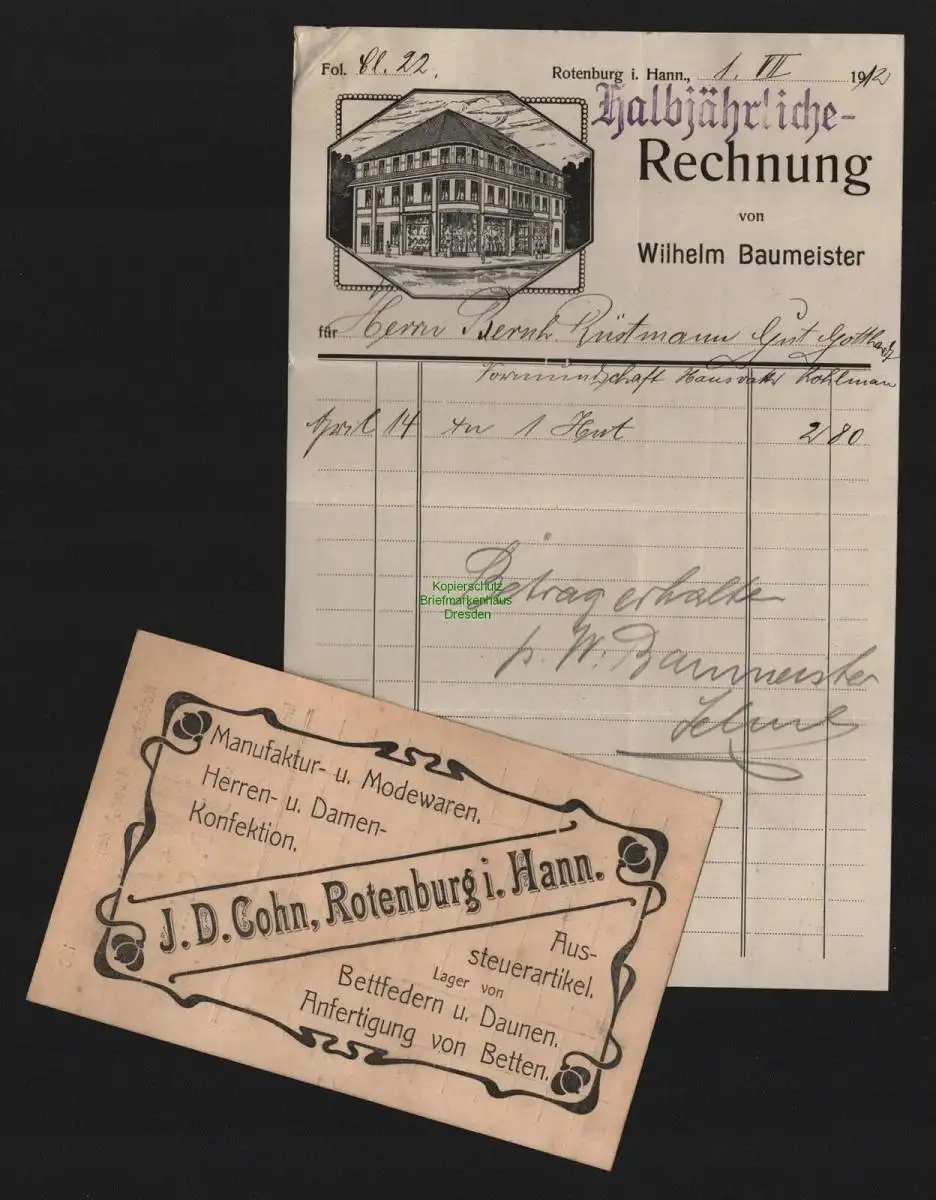 Fol. Cl. 22. Rotenburg i. Hann., 1. VII 1912
Halbjährliche-
Rechnung
von
Wilhelm Baumeister
für Herrn Bernh. Rüstmann Gut
Vormundschaft Hausvater Kohlman
April 14 An 1 Hut 2 80
Betrag erhalten
p. W. Baumeister
Kopierschutz
Briefmarkenhaus
Dresden
Manufaktur- u. Modewaren.
Herren- u. Damen-
Konfektion.
J. D. Cohn, Rotenburg i. Hann.
Aus-
steuerartikel.
Lager von
Bettfedern u. Daunen.
Anfertigung von Betten.